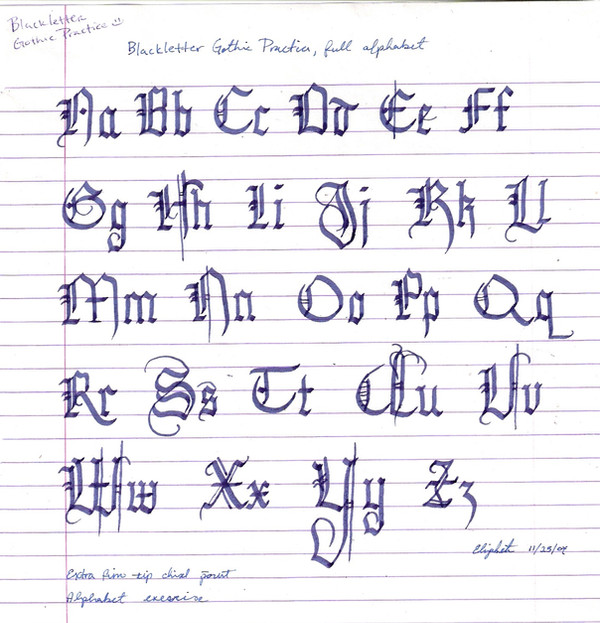 Blackletter
Gothic Practice
Blackletter Gothic Practice, full alphabet
Aa Bb Cc Dd Ee Ff
Gg Hh Ii Jj Kk Ll
Mm Nn Oo Pp Qq
Rr Ss Tt Uu Vv
Ww Xx Yy Zz
11/25/04
Extra firm-tip chisel point
Alphabet exercise